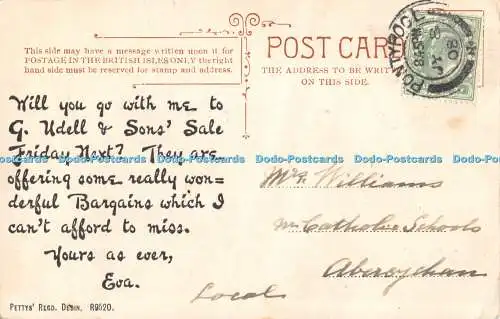 This side may have a message written upon it for
POSTAGE IN THE BRITISH ISLES ONLY the right
hand side must be reserved for stamp and address.
POST CARD
THE ADDRESS TO BE WRITTEN
ON THIS SIDE.
PONTYPOOL
Will you go with me to
G. Udell & Sons' Sale
Friday Next? They are
offering some really won=
derful Bargains which I
can't afford to miss.
Yours as ever,
Eva.
Local
PETTYS' REGD. DESIN. R9520.
Williams
Catholic Schools
Abersychan
Dodo-Postcards Dodo-Postcards Dodo-Postcards Dodo-Postcards Dodo-Postcards